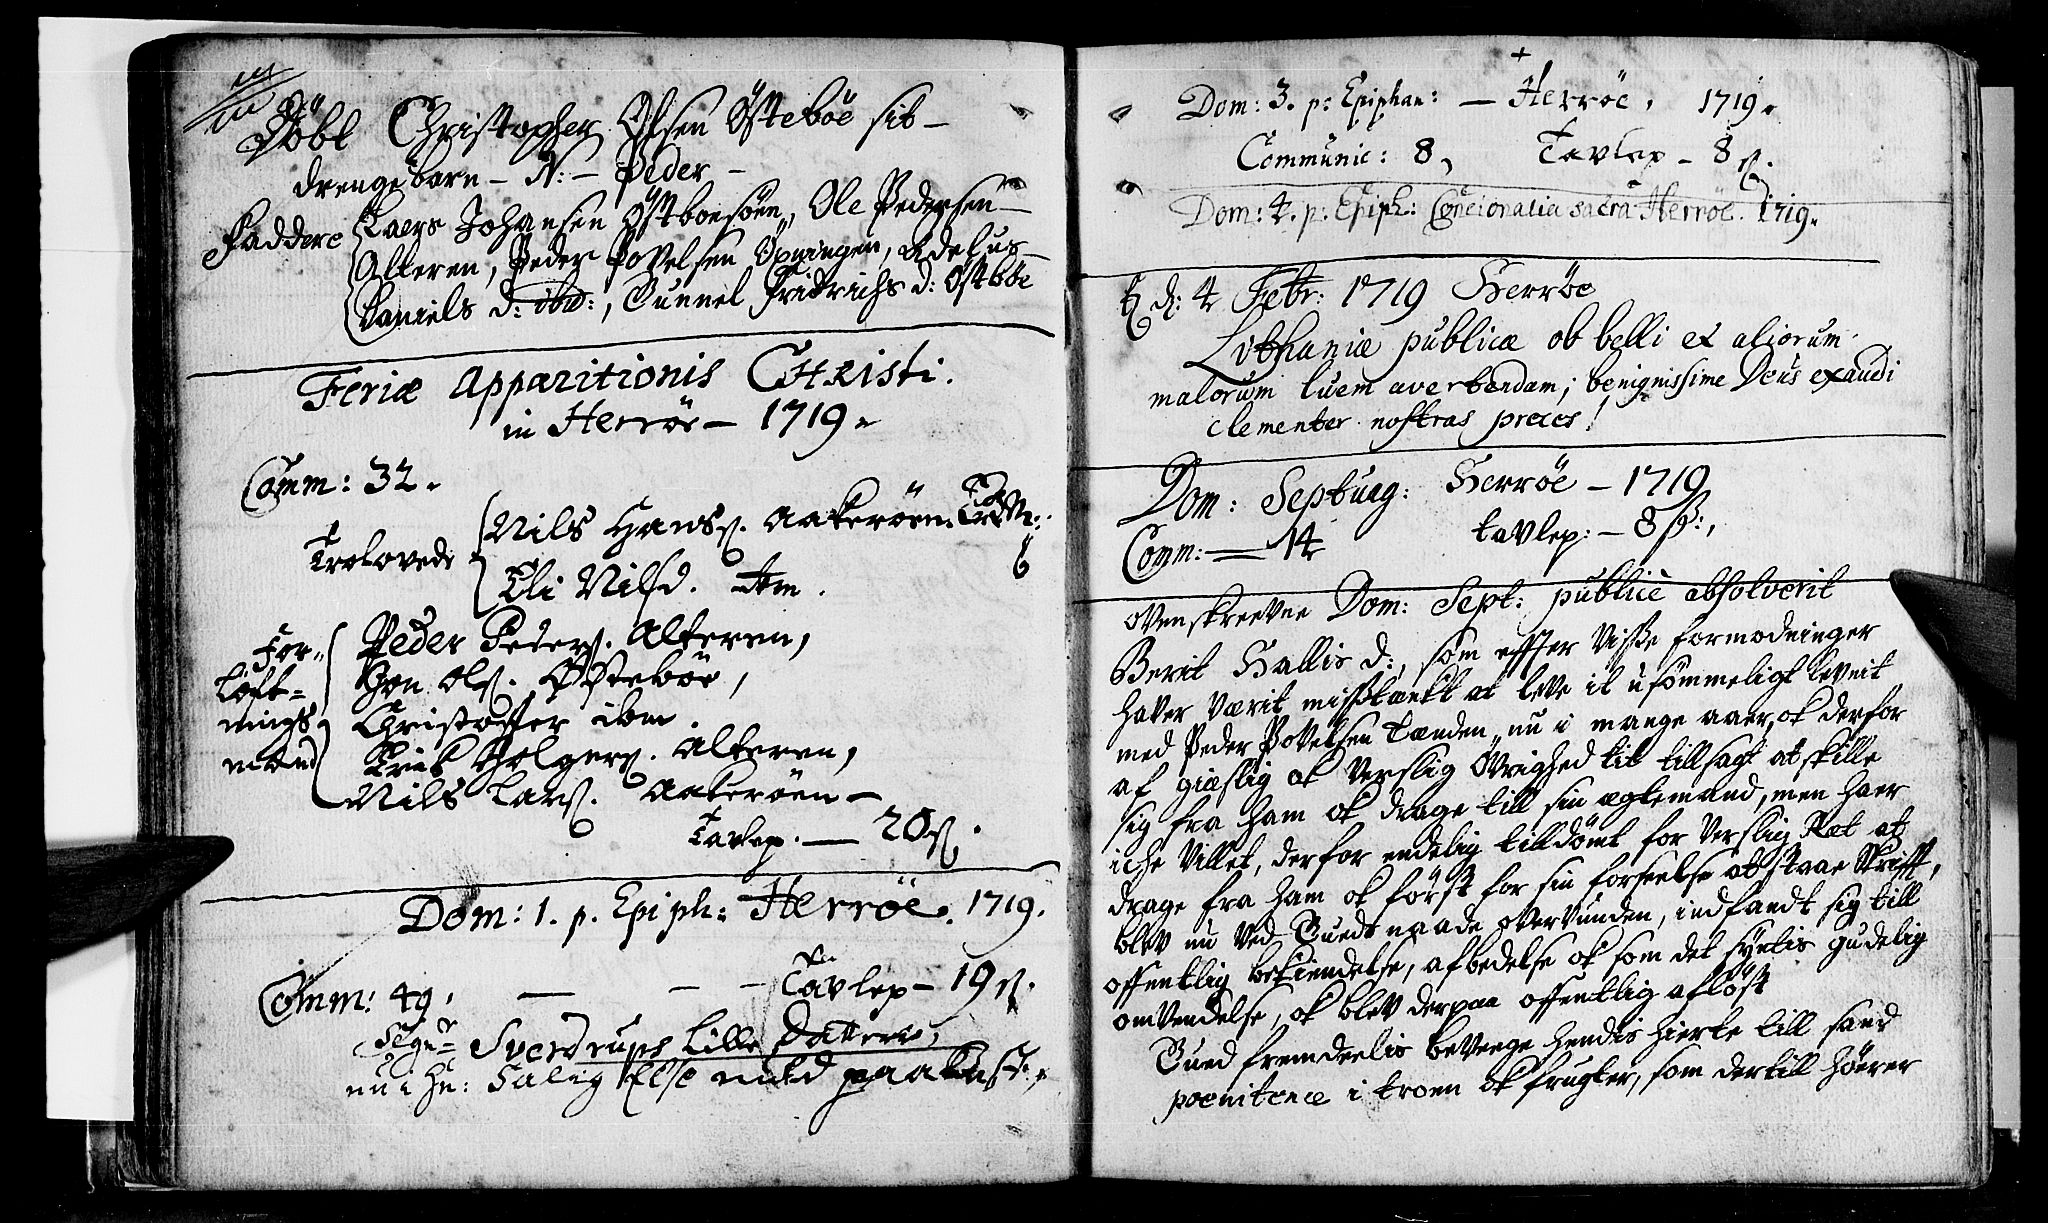 Döbt Christopher Olsen Östeböe sit
drenge barn - N: - Peder -
Faddere Lars Johansen Östboesöen, Ole Pedersen
Alteren, Peder Povelsen, Adelus
Daniels d: ibid:, Gunnel Fridrichs d: Östböe
Feriæ Apparitionis CHRisti.
in Herröe - 1719.
Comm: 32.
Nils Hans. Aakeröen
Trolovede
Eli Nilsd. ibm.
Peder Peders. Alteren,
For-
Jon Ols. Østeböe,
løft-
Christopher ibm.
nings
Erik Holgers. Alteren,
mænd
Nils Lars. Aakeröen -
Tavlep. — 20 ſ.
Dom: 1. p. Epiph: Herröe. 1719.
Comm: 49. — - - Tavlep - 19 ſ.
Segnr Sverdrups Lille Datter,
nu i hr: Salig Else med paakast.
Dom: 3. p: Epiphan: — Herröe, 1719.
Communic: 8, Tavlep - 8 ſ.
Dom: 4. p: Epiph: Concionalia sacra Herröe. 1719.
d: 4 Febr: 1719 Herröe
Lithaniæ publicæ ob belli et aliorum
malorum luem avertendam; benignissime Deus exaudi
clementer nostras preces!
Dom: Septuag: Herröe - 1719
Comm: — 14 tavlep: - 8 ß:,
ovenskreevne Dom: Sept: publicè absolverit
Berit Hallis d:, som effter Visse formodninger
haver værit misstænkt at leve it usömmeligt leveit
med Peder Povelsen Tænden, nu i mange aaer, ok derfor
af gieslig ok Verslig Övrighed tit tillsagt at skille
sig fra ham ok drage till sin ægtemand, men haer
icke Villet, derfor endelig tilldömt for Verslig Ræt at
drage fra ham ok först for sin forseelse at staae Skrifft,
blev nu ved Guds naade overvunden, indfandt sig till
offentlig bekiendelse, afbedelse ok som det syntis gudelig
omvendelse, ok blev derpaa offentlig aflöst
Gued fremdeelis bevæge hendis hierte till sand
poenitence i troen ok frugter, som dertill höerer